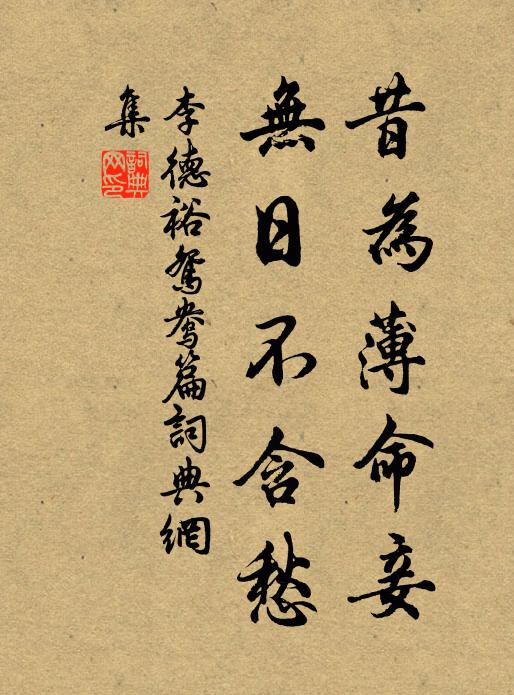 昔為薄命妾
無日不含愁
李德裕鴛鴦篇詞典網
集
詞典网印